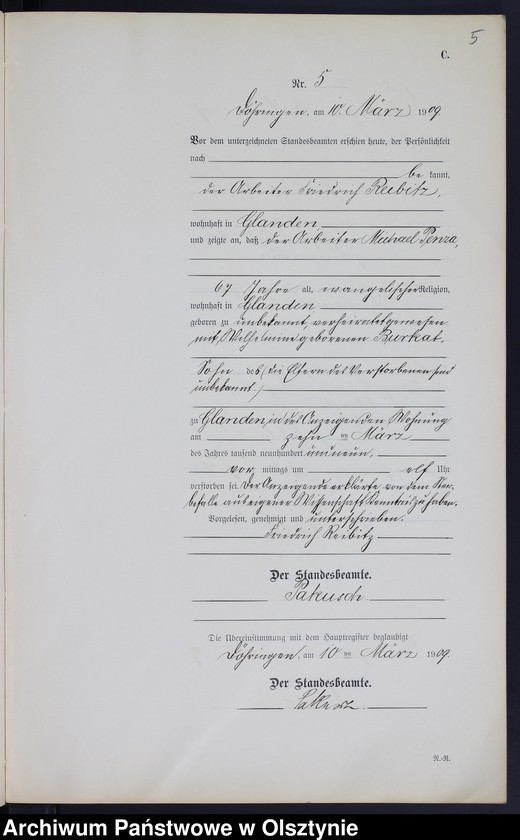 5
C.
Nr. 5
Döhringen, am 10. März 1909.
Vor dem unterzeichneten Standesbeamten erschien heute, der Persönlichkeit
nach
be kannt,
der Arbeiter Friedrich Reibitz,
wohnhaft in Glanden
und zeigte an, daß der Arbeiter Michael Penza,
67 Jahre alt, evangelischer Religion,
wohnhaft in Glanden
geboren zu unbekannt, verheiratet gewesen
mit Wilhelmine geborenen Burkat,
Sohn des (die Eltern des Verstorbenen sind
unbekannt.)
zu Glanden, in des Anzeigenden Wohnung
am zehn ten März
des Jahres tausend neunhundert und neun
vor mittags um elf Uhr
verstorben sei. Der Anzeigende erklärte von dem Ster-
befalle aus eigener Wissenschaft Kenntnis zu haben.
Vorgelesen, genehmigt und unterschrieben.
Friedrich Reibitz
Der Standesbeamte.
Die Übereinstimmung mit dem Hauptregister beglaubigt
Döhringen, am 10 ten März 1909.
Der Standesbeamte.
N.-R.
Archiwum Państwowe w Olsztynie